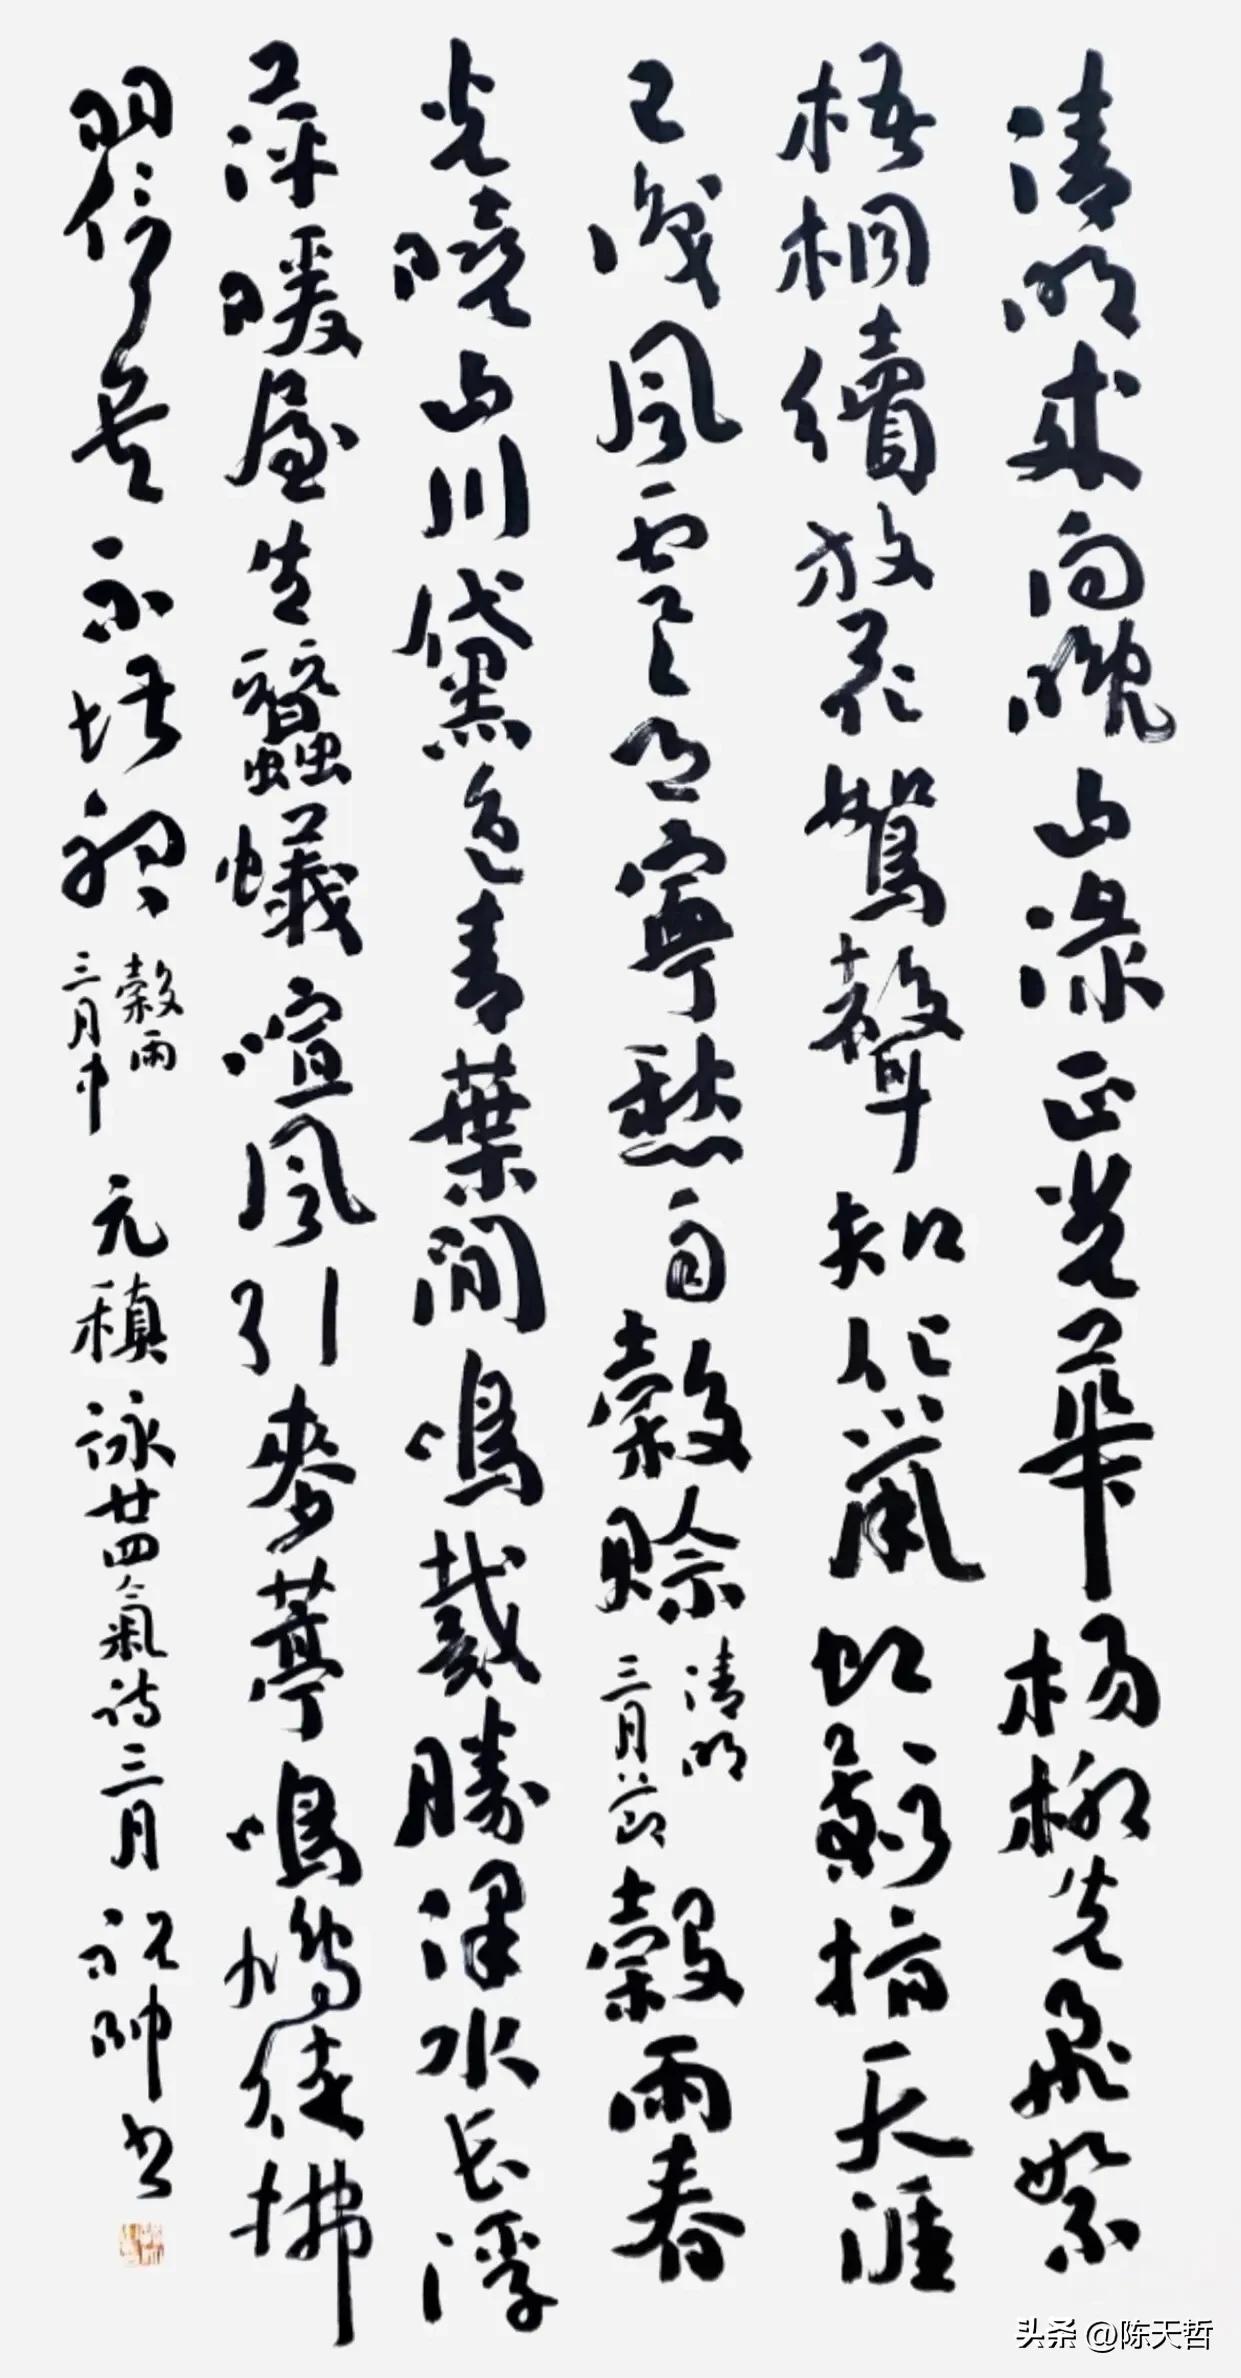 清明來向晚山渌正光華楊柳先飛絮
梧桐續放花鴽聲知化鼠虹影指天涯
已識風雲意寧愁自穀賒
清明
三月節
穀雨春
光曉山川黛色青葉間鳴戴勝澤水長浮
萍暖屋生蠶蟻喧風引麥葶鳴鳩徒拂
羽信矣不堪聽
穀雨
三月中
元稹詠廿四氣詩三月祝帥書
头条 @陈天哲